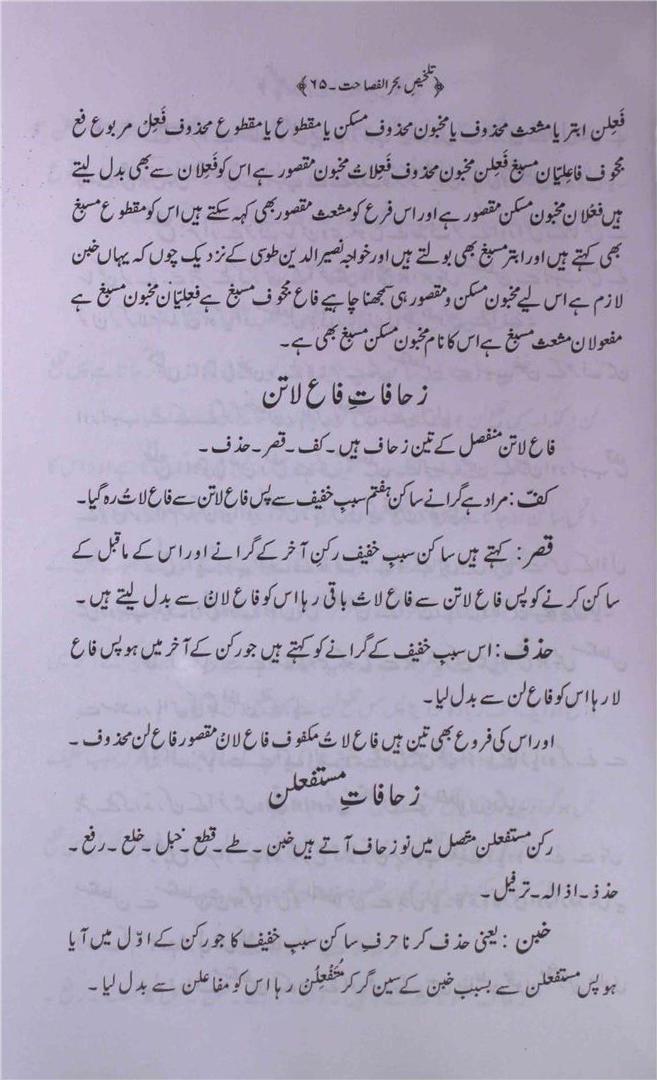 ﴿تلخیصِ بحر الفصاحت۔۶۵﴾
فَعلن ابتر یا مشعث محذوف یا مخبون محذوف مسکن یا مقطوع یا مقطوع محذوف فَعِلُ مربوع فع
مجوف فاعلیّان مسبغ فَعِلن مخبون محذوف فَعِلات مخبون مقصور ہے اس کو فَعِلان سے بھی بدل لیتے
ہیں فَعْلان مخبون مسکن مقصور ہے اور اس فرع کو مشعث مقصور بھی کہہ سکتے ہیں اس کو مقطوع مسبغ
بھی کہتے ہیں اور ابتر مسبغ بھی بولتے ہیں اور خواجہ نصیر الدین طوسی کے نزدیک چوں کہ یہاں خبن
لازم ہے اس لیے مخبون مسکن و مقصور ہی سمجھنا چاہیے فاع مجوف مسبغ ہے فعلیّان مخبون مسبغ ہے
مفعولان مشعث مسبغ ہے اس کا نام مخبون مسکن مسبغ بھی ہے۔
زحافاتِ فاع لاتن
فاع لاتن منفصل کے تین زحاف ہیں۔ کف۔ قصر۔ حذف۔
کفّ: مراد ہے گرانے ساکن ہفتم سببِ خفیف سے پس فاع لاتن سے فاع لاتُ رہ گیا۔
قصر: کہتے ہیں ساکن سببِ خفیف رکنِ آخر کے گرانے اور اس کے ماقبل کے
ساکن کرنے کو پس فاع لاتن سے فاع لاتْ باقی رہا اس کو فاع لانْ سے بدل لیتے ہیں۔
حذف: اس سببِ خفیف کے گرانے کو کہتے ہیں جو رکن کے آخر میں ہو پس فاع
لا رہا اس کو فاع لن سے بدل لیا۔
اور اس کی فروع بھی تین ہیں فاع لاتُ مکفوف فاع لانْ مقصور فاع لن محذوف۔
زحافاتِ مستفعلن
رکن مستفعلن متّصل میں نو زحاف آتے ہیں خبن۔ طے۔ قطع۔ خبل۔ خلع۔ رفع۔
حذذ۔ اذالہ۔ ترفیل۔
خبن: یعنی حذف کرنا حرفِ ساکن سببِ خفیف کا جو رکن کے اوّل میں آیا
ہو پس مستفعلن سے بسبب خبن کے سین گر کر مُتَفعِلُن رہا اس کو مفاعلن سے بدل لیا۔